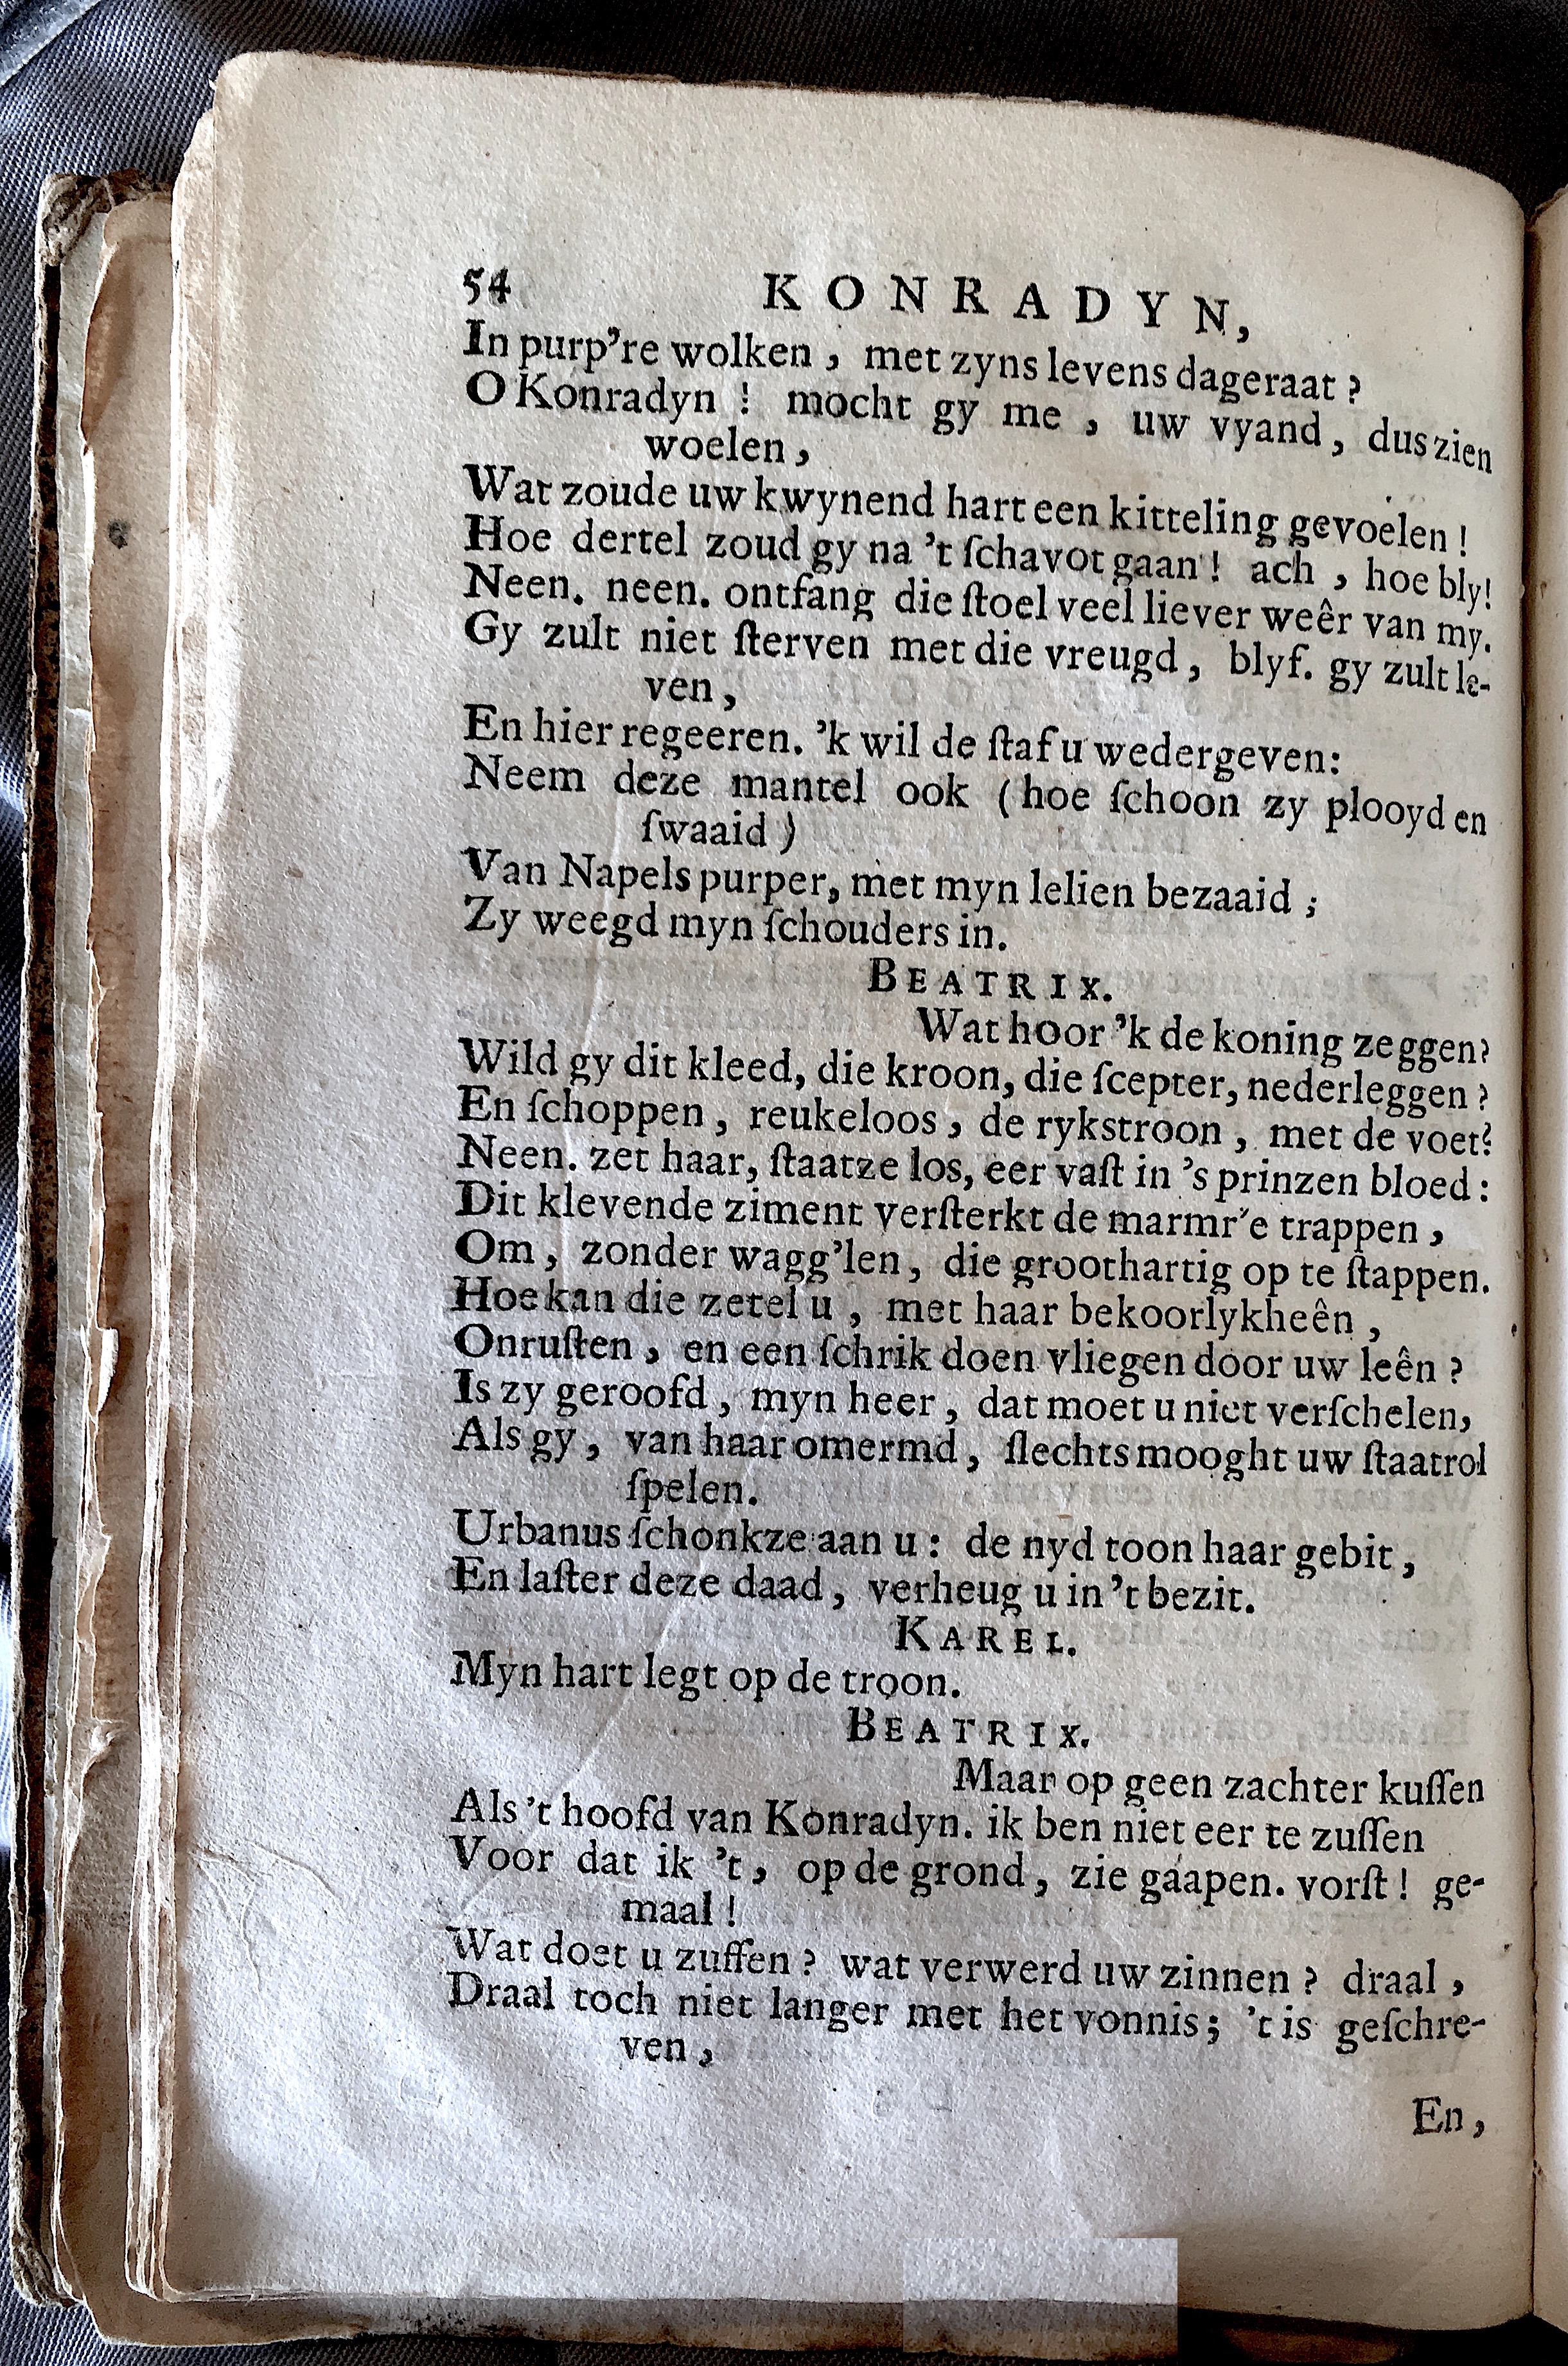 54 KONRADYN,
In purp’re wolken, met zyns levens dageraat?
O Konradyn! mocht gy me, uw vyand, dus zien
woelen,
Wat zoude uw kwynend hart een kitteling gevoelen!
Hoe dertel zoud gy na ’t ſchavot gaan! ach, hoe bly!
Neen. neen. ontfang die ſtoel veel liever weêr van my.
Gy zult niet ſterven met die vreugd, blyf. gy zult le-
ven,
En hier regeeren. ’k wil de ſtaf u wedergeven:
Neem deze mantel ook (hoe ſchoon zy plooyd en
ſwaaid)
Van Napels purper, met myn lelien bezaaid;
Zy weegd myn ſchouders in.
BEATRIX.
Wat hoor ’k de koning zeggen?
Wild gy dit kleed, die kroon, die ſcepter, nederleggen?
En ſchoppen, reukeloos, de rykstroon, met de voet?
Neen. zet haar, ſtaatze los, eer vaſt in ’s prinzen bloed:
Dit klevende ziment verſterkt de marmr’e trappen,
Om, zonder wagg’len, die groothartig op te ſtappen.
Hoe kan die zetel u, met haar bekoorlykheên,
Onruſten, en een ſchrik doen vliegen door uw leên?
Is zy geroofd, myn heer, dat moet u niet verſchelen,
Als gy, van haar omermd, ſlechts mooght uw ſtaatrol
ſpelen.
Urbanus ſchonkze aan u: de nyd toon haar gebit,
En laſter deze daad, verheug u in ’t bezit.
KAREL.
Myn hart legt op de troon.
BEATRIX.
Maar op geen zachter kuſſen
Als ’t hoofd van Konradyn. ik ben niet eer te zuſſen
Voor dat ik ’t, op de grond, zie gaapen. vorſt! ge-
maal!
Wat doet u zuffen? wat verwerd uw zinnen? draal,
Draal toch niet langer met het vonnis; ’t is geſchre-
ven,
En,